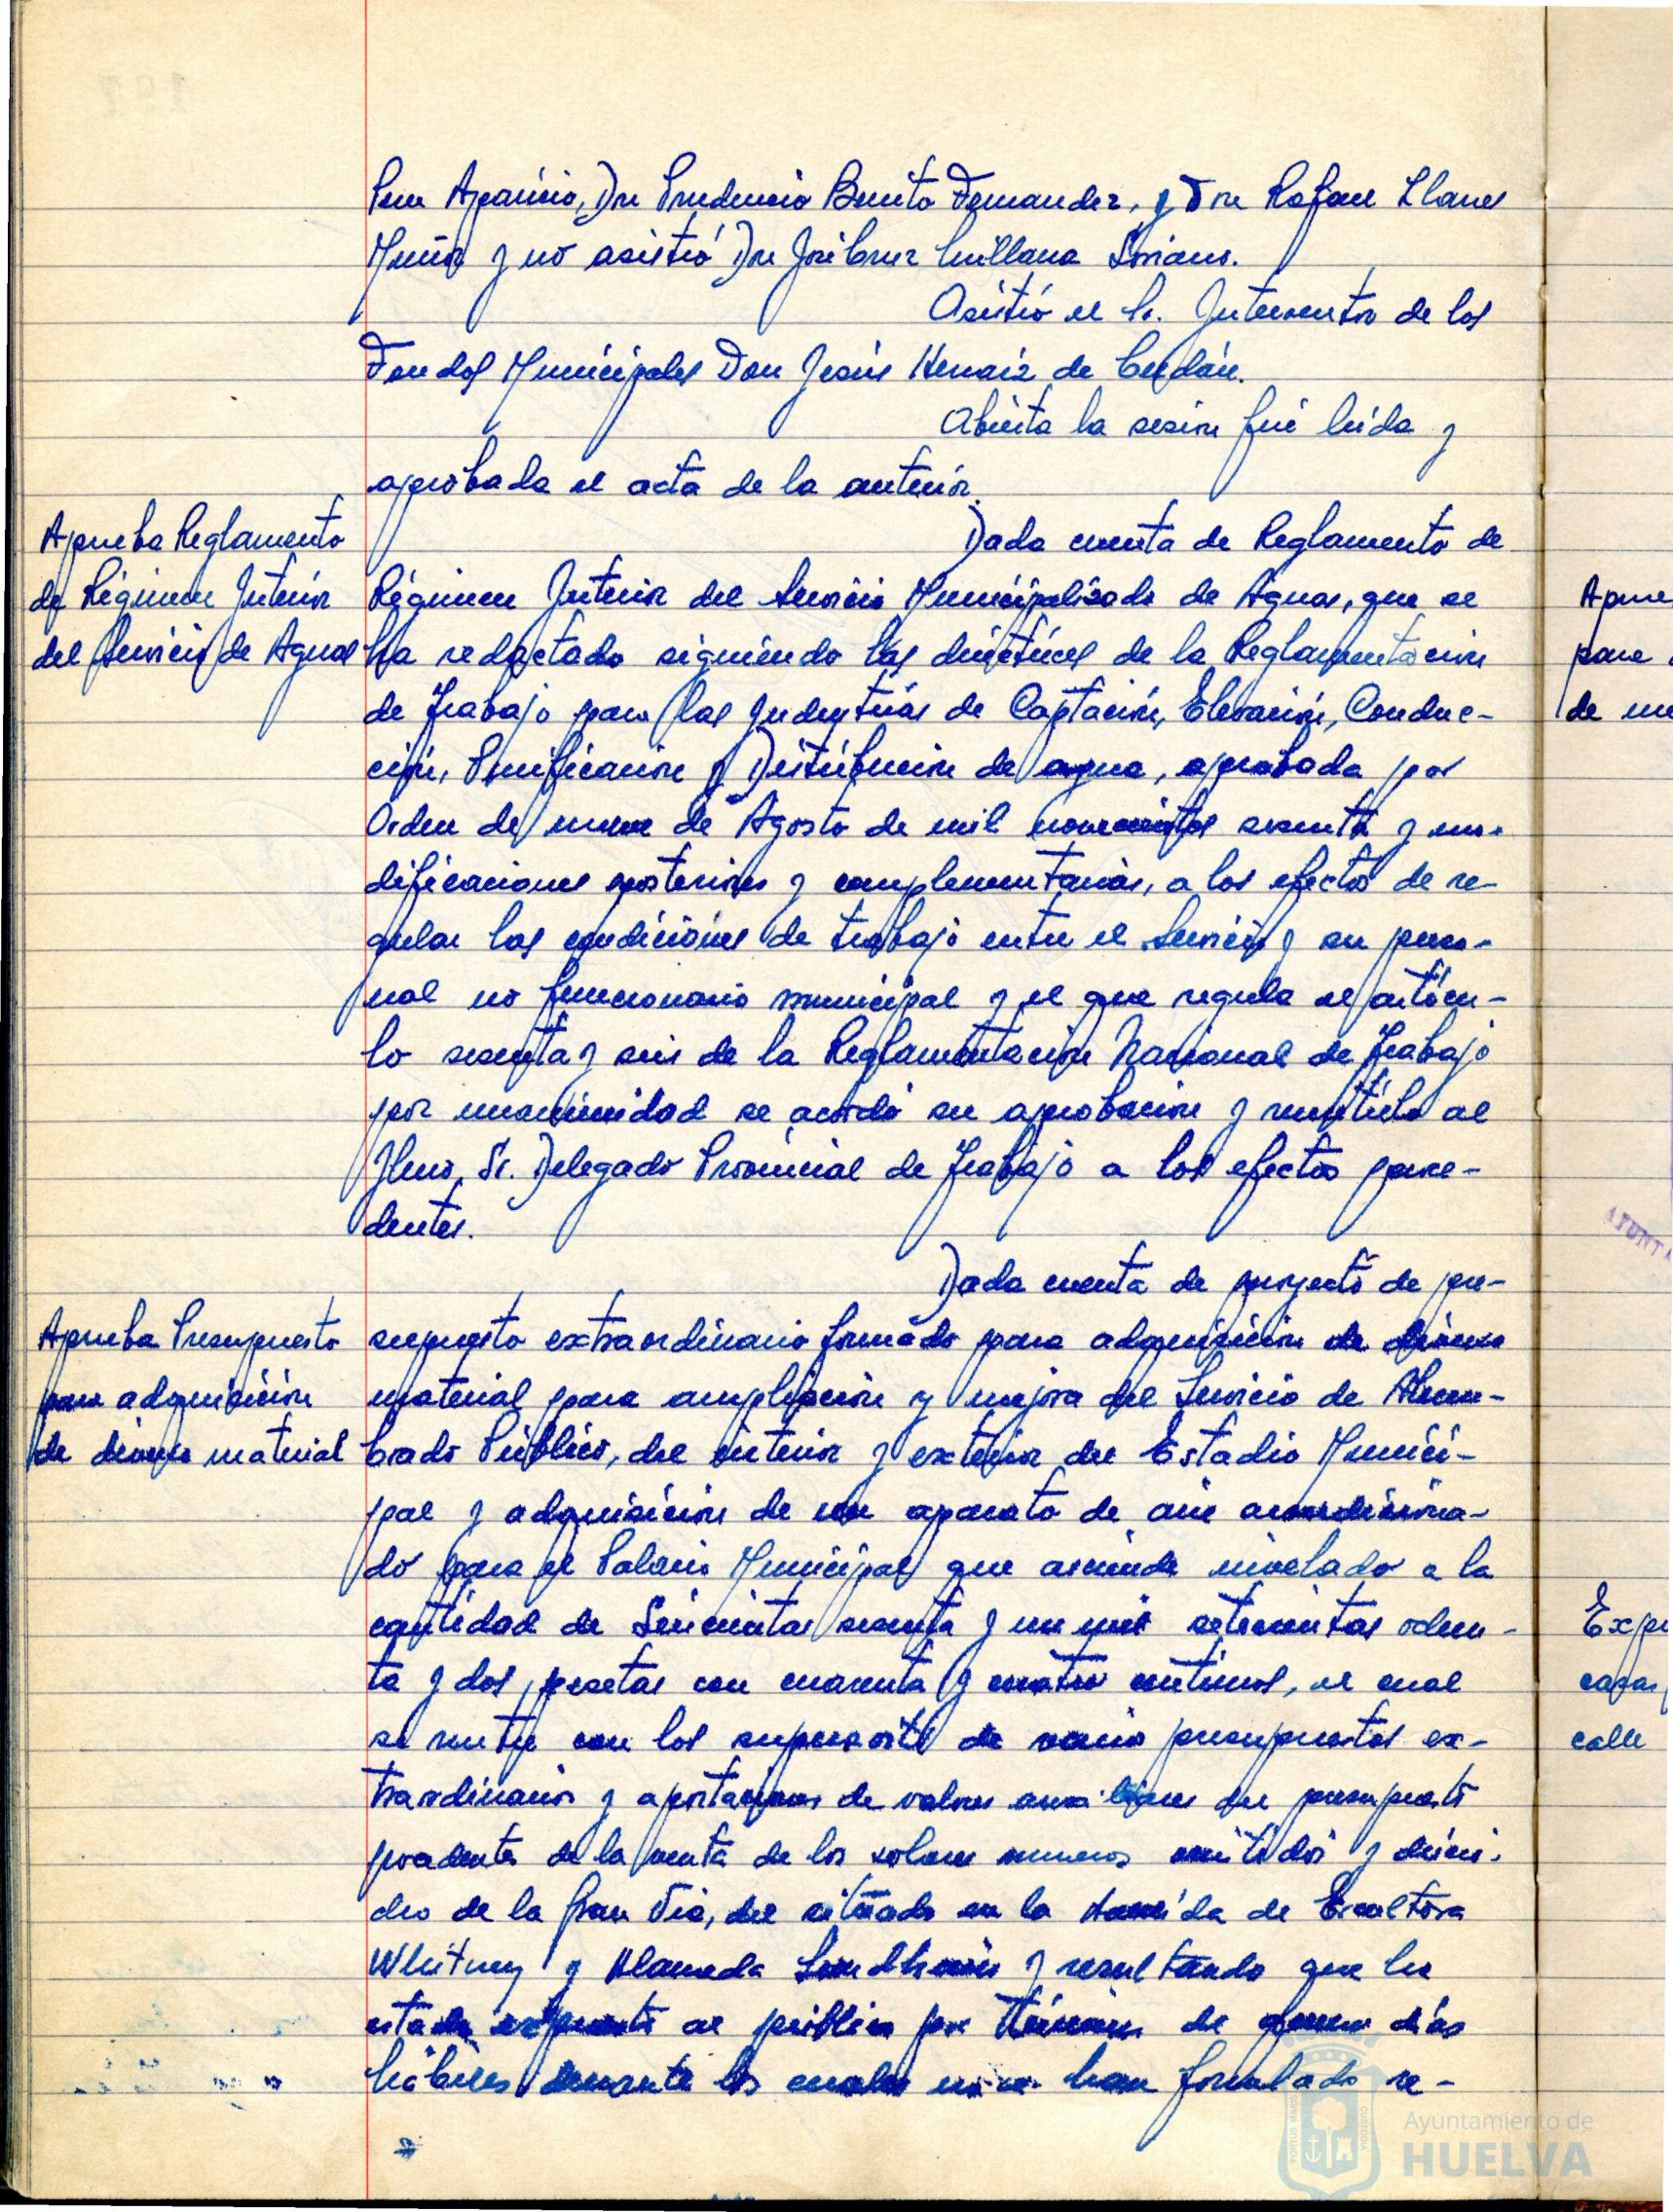 Aparicio, Don Prudencio Benito Fernandez, y Don Rafael Llanes
Muñoz y no asistió Don José Cruz Soriano.
Asistió el Sr. Interventor de los
Fondos Municipales Don Jesús Hernaiz de
Abierta la sesion fué leida y
aprobada el acta de la anterior.
Aprueba Reglamento
de Régimen Interior
del Servicio de Aguas
Dada cuenta de Reglamento de
Régimen Interior del Servicio Municipalizado de Aguas, que se
ha redactado siguiendo las directrices de la Reglamentacion
de Trabajo para las Industrias de Captación, Elevación, Conduc-
ción, Purificacion y Distribucion de agua, aprobada por
Orden de nueve de Agosto de mil novecientos sesenta y mo-
dificaciones posteriores y complementarias, a los efectos de re-
gular las condiciones de trabajo entre el Servicio y su perso-
nal no funcionario municipal y el que regula el artícu-
lo sesenta y seis de la Reglamentacion Nacional de Trabajo
por unanimidad se acordó su aprobacion y remitirlo al
Ilmo. Sr. Delegado Provincial de Trabajo a los efectos proce-
dentes.
Aprueba Presupuesto
para adquisición
de diverso material
Dada cuenta de proyecto de pre-
supuesto extraordinario formado para adquisicion de diverso
material para ampliacion y mejora del Servicio de Alum-
brado Público, del interior y exterior del Estadio Munici-
pal y adquisicion de un aparato de aire acondiciona-
do para el Palacio Municipal que asciende nivelado a la
cantidad de Seiscientas sesenta y un mil setecientas ochen-
ta y dos pesetas con cuarenta y cuatro centimos, el cual
se nutre con los superavits de varios presupuestos ex-
traordinarios y aportaciones de valores auxiliares del presupuesto
procedentes de la venta de los solares numeros veintidós y dieci-
ocho de la Gran Via, del situado en la Avenida de Escultora
Whitney y Alameda Sundheim y resultando que ha
estado expuesto al publico por término de quince dias
hábiles durante los cuales no se han formulado re-
Apru
para
de
Expe
casas
calle
AYUNTA
Ayuntamiento de
HUELVA